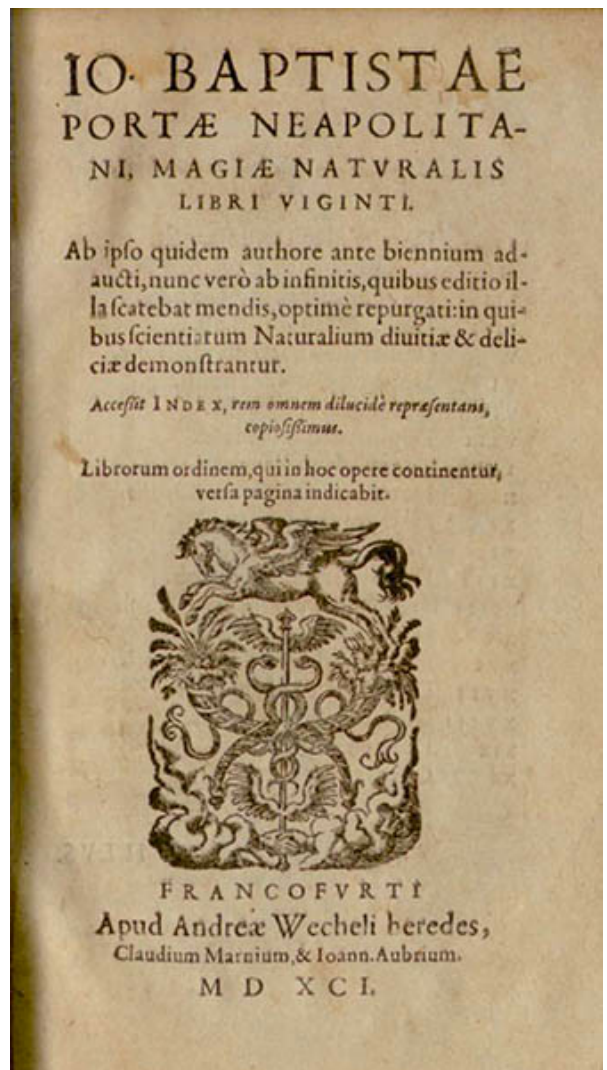 IO· BAPTISTAE
PORTÆ NEAPOLITA-
NI, MAGIÆ NATVRALIS
LIBRI VIGINTI.
Ab ipſo quidem authore ante biennium ad-
aucti, nunc verò ab infinitis, quibus editio il-
la ſcatebat mendis, optimè repurgati: in qui-
bus ſcientiarum Naturalium diuitiæ & deli-
ciæ demonſtrantur.
Acceſſit INDEX, rem omnem dilucidè repræſentans,
copioſiſſimus.
Librorum ordinem, qui in hoc opere continentur,
verſa pagina indicabit.
FRANCOFVRTI
Apud Andreæ Wecheli heredes,
Claudium Marnium, & Ioann. Aubrium.
M D XCI.